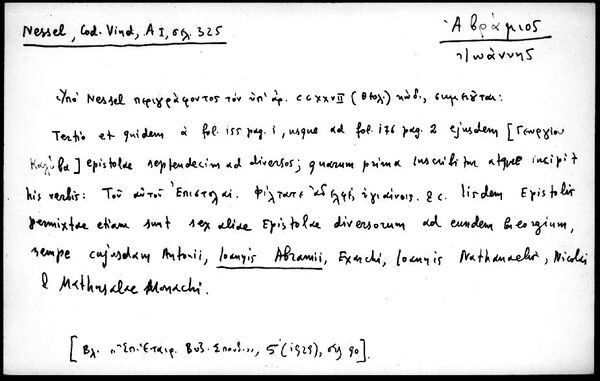 Nessel, Cod. Vind, A I, σελ. 325
Ἀβράμιος
Ἰωάννης
Ὑπὸ Nessel περιγράφοντος τὸν ὑπ' ἀρ. CCXXVII (θεολ.) κώδ., σημειοῦται:
Tertio et quidem à fol. 155 pag. 1, usque ad fol. 176 pag. 2 ejusdem [Γεωργίου
Καλύβα] epistolae septendecim ad diversos; quarum prima inscribitur atque incipit
his verbis: Τοῦ αὐτοῦ Ἐπιστολαί. Φίλτατε ἀδελφέ, ὑγιαίνοις. &c. Iisdem Epistolis
permixtae etiam sunt sex aliae Epistolae diversorum ad eundem Georgium,
nempe cujusdam Antonii, Ioannis Abramii, Exarchi, Ioannis Nathanaelis, Nicolai
& Mathusalae Monachi.
[Βλ. „Ἐπ. Ἑταιρ. Βυζ. Σπουδ.", 5 (1929), σελ 90].